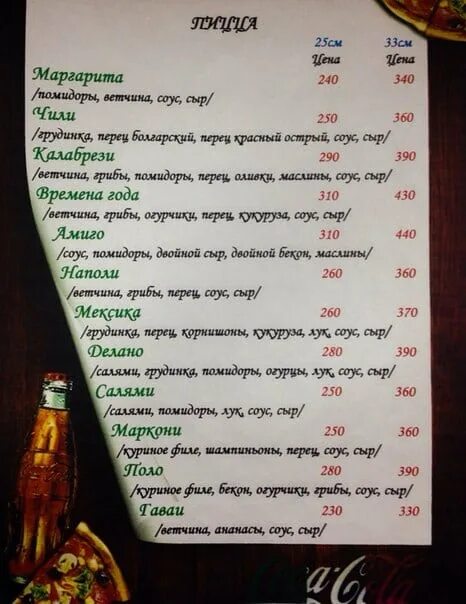 ПИЦЦА
25см 33см
Цена Цена
Маргарита 240 340
/помидоры, ветчина, соус, сыр/
Чили 250 360
/грудинка, перец болгарский, перец красный острый, соус, сыр/
Калабрези 290 390
/ветчина, грибы, помидоры, перец, оливки, маслины, соус, сыр/
Времена года 310 430
/ветчина, грибы, огурчики, перец, кукуруза, соус, сыр/
Амиго 310 440
/соус, помидоры, двойной сыр, двойной бекон, маслины/
Наполи 260 360
/ветчина, грибы, перец, соус, сыр/
Мексика 260 370
/грудинка, перец, корнишоны, кукуруза, лук, соус, сыр/
Делано 280 390
/салями, грудинка, помидоры, огурцы, лук, соус, сыр/
Салями 250 360
/салями, помидоры, лук, соус, сыр/
Маркони 250 360
/куриное филе, шампиньоны, перец, соус, сыр/
Поло 280 390
/куриное филе, бекон, огурчики, грибы, соус, сыр/
Гаваи 230 330
/ветчина, ананасы, соус, сыр/
Coca-Cola